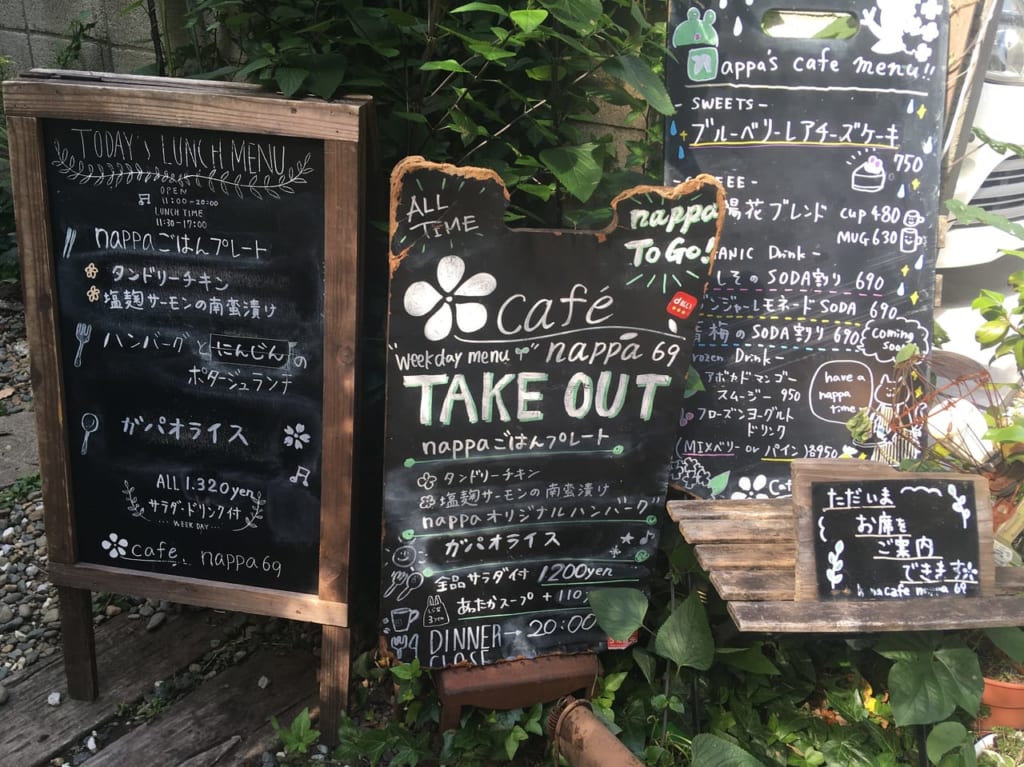 TODAY's LUNCH MENU
OPEN
11:00-20:00
LUNCH TIME
11:30-17:00
nappaごはんプレート
タンドリーチキン
塩麹サーモンの南蛮漬け
ハンバーグ と にんじん の
ポタージュランチ
ガパオライス
ALL 1.320yen
サラダ・ドリンク付
...WEEK DAY...
café nappa69
ALL
TIME
nappa
TO GO!
café
"Weekday menu" nappa 69
TAKE OUT
nappaごはんプレート
タンドリーチキン
塩麹サーモンの南蛮漬け
nappaオリジナルハンバーグ
ガパオライス
全品サラダ付 1200yen
あったかスープ +110
DINNER→20:00
CLOSE
appa's cafe menu!!
- SWEETS -
ブルーベリーレアチーズケーキ
750
陽花ブレンド cup 480
MUG 630
GANIC Drink -
しそのSODA割り 690
ンジャーレモネードSODA 690
青梅のSODA割り 690
coming
soon
rozen Drink -
アボカドマンゴー
スムージー 950
フローズンヨーグルト
ドリンク
(MIXベリー or パイン)各950
have a
nappa
time
ただいま
お席を
ご案内
できます